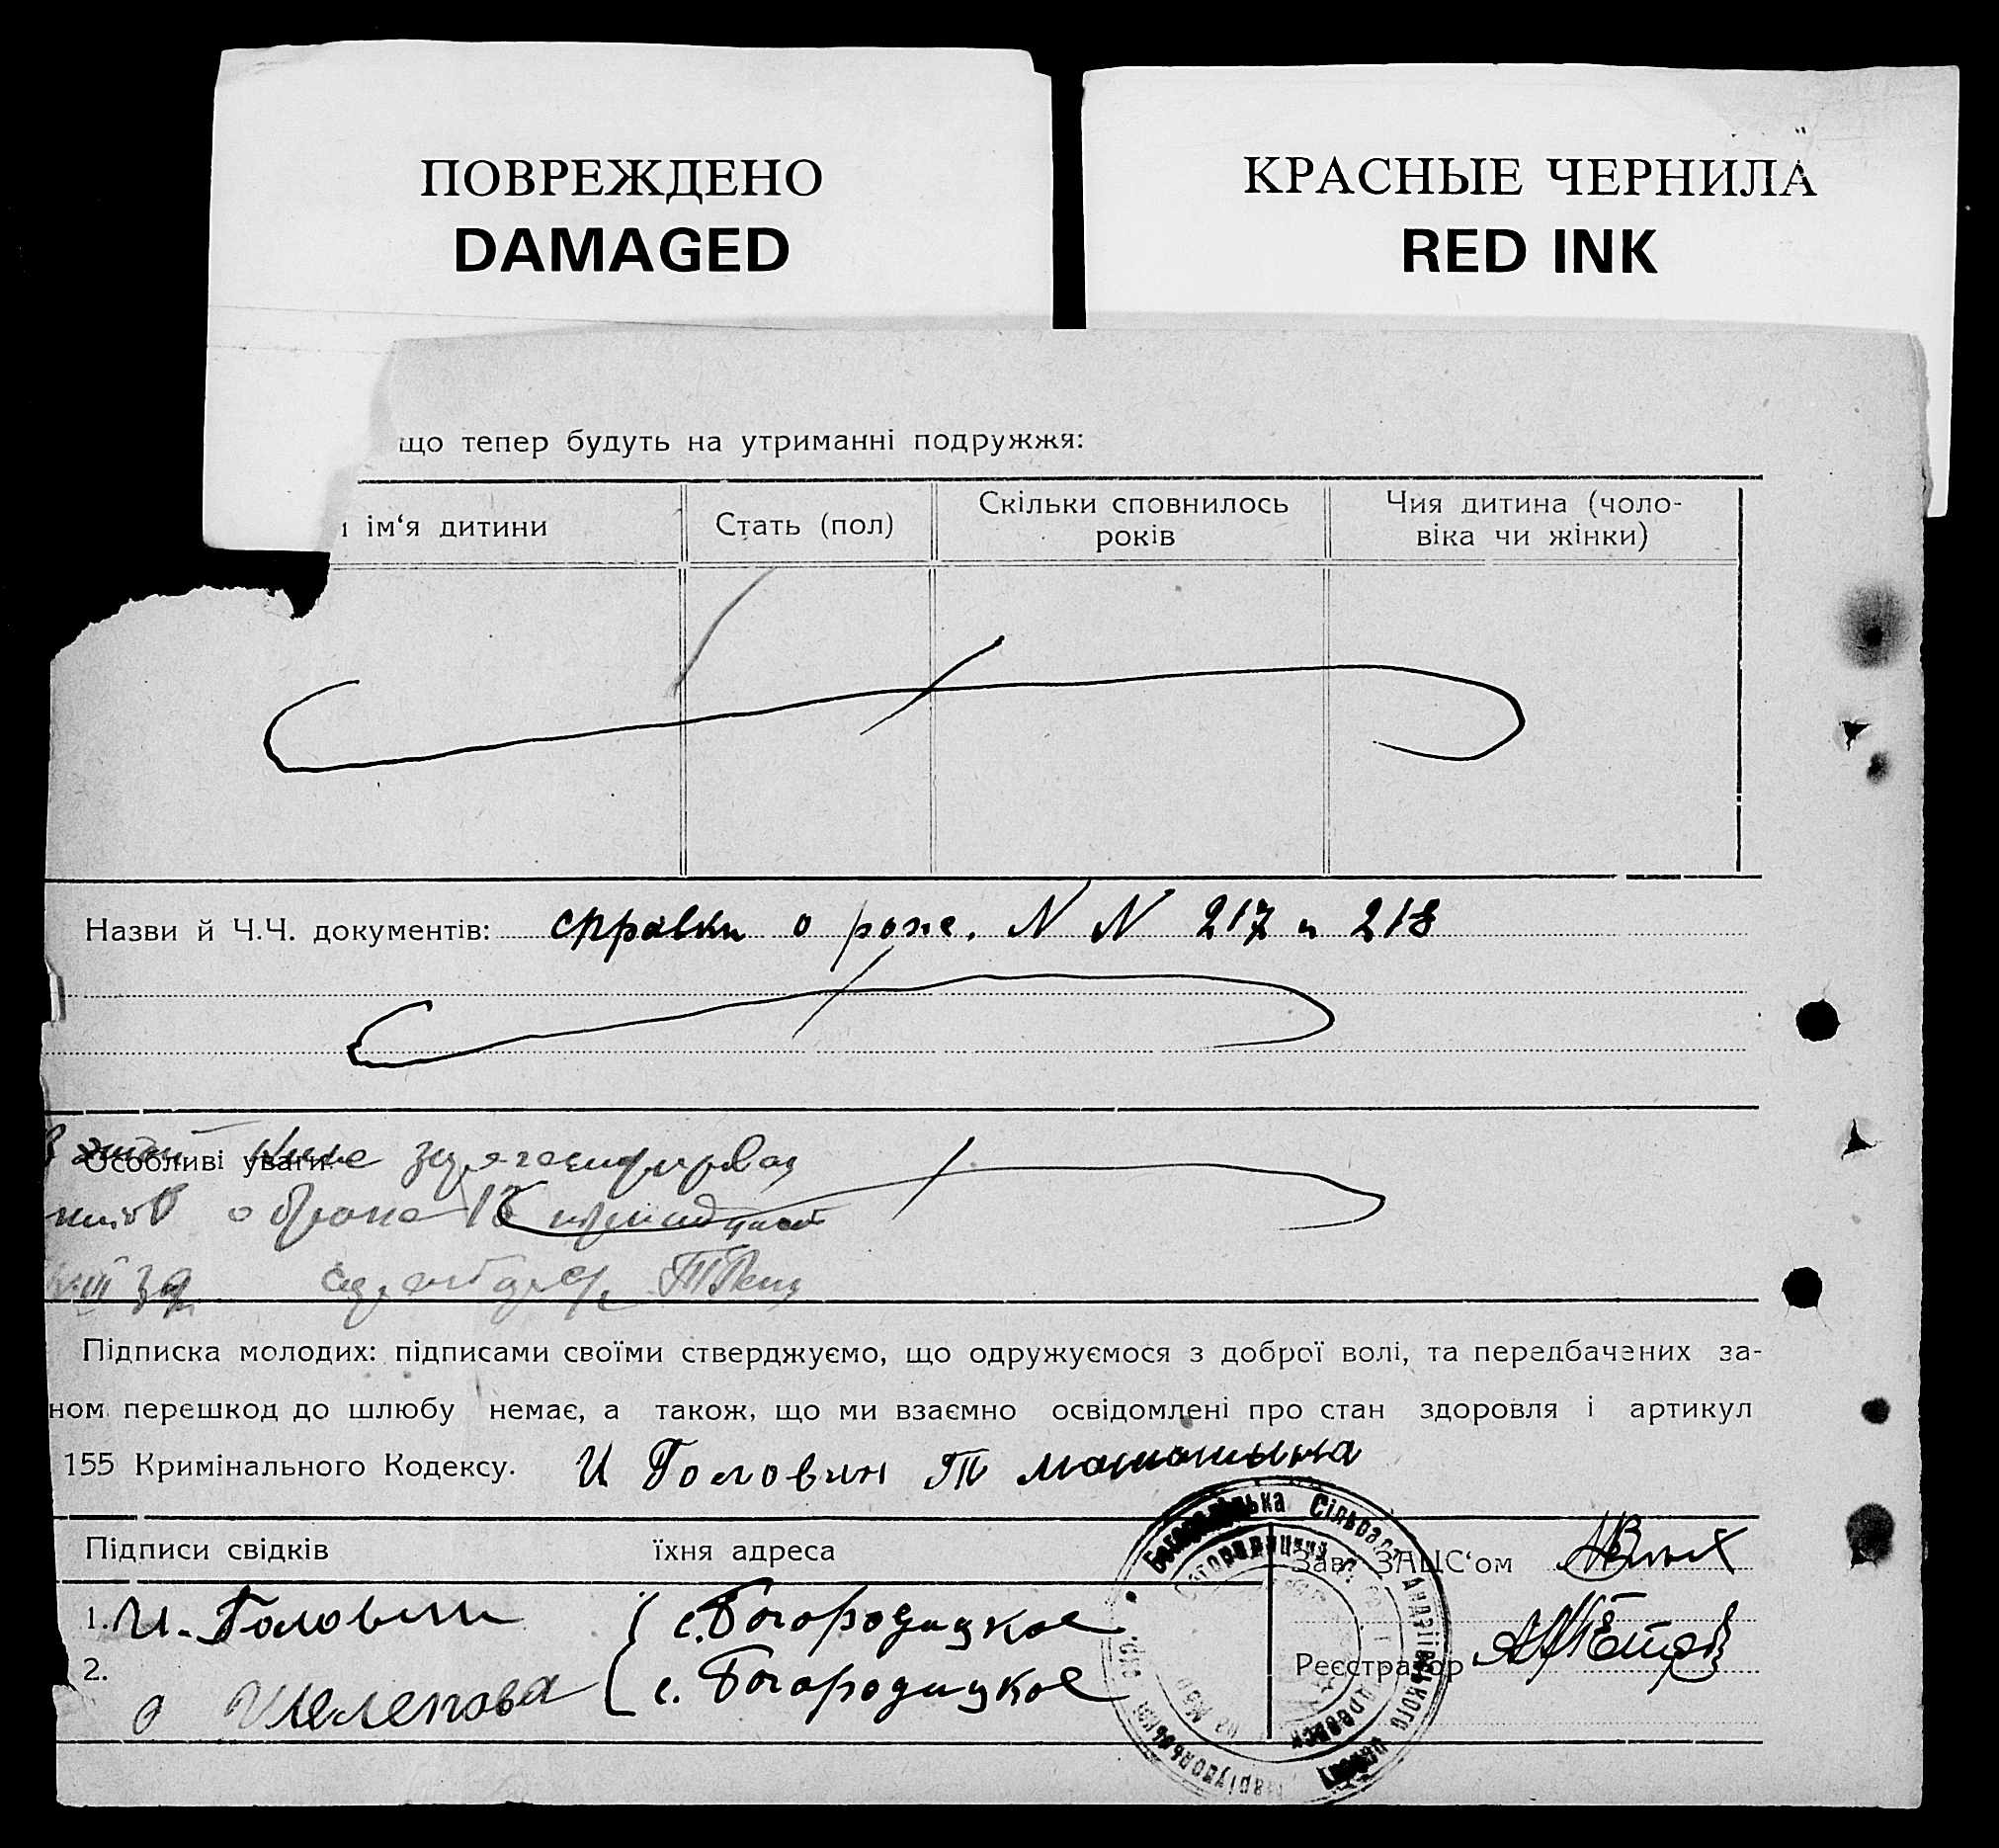 ПОВРЕЖДЕНО
DAMAGED
КРАСНЫЕ ЧЕРНИЛА
RED INK
що тепер будуть на утриманні подружжя:
ім‘я дитини
Стать (пол)
Скільки сповнилось
років
Чия дитина (чоло-
віка чи жінки)
Назви й Ч.Ч. документів: справки о рож. N N 217 и 218
Особливі уваги:
о браке 13
Підписка молодих: підписами своїми стверджуємо, що одружуємося з доброї волі, та передбачених за-
ном перешкод до шлюбу немає, а також, що ми взаємно освідомлені про стан здоровля і артикул
155 Кримінального Кодексу. И Головин Т
Підписи свідків
їхня адреса
Зав. ЗАЦС‘ом
1. И. Головин с. Богородицкое
Реєстратор
2. Шелепова с. Богородицкое
Сільрада Андріївського